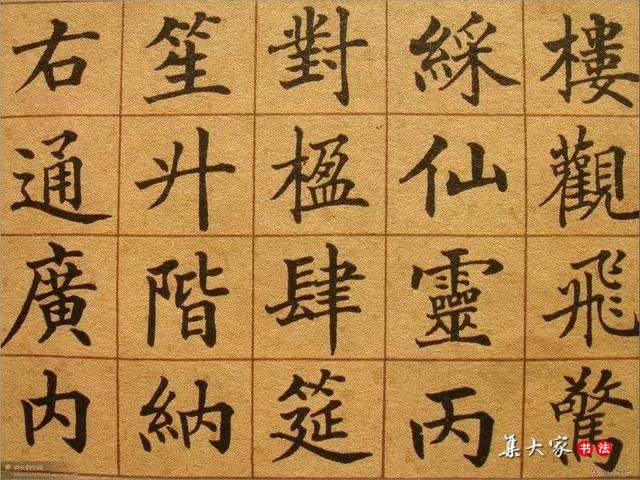 樓觀飛驚
綵仙靈丙
對楹肆筵
笙升階納
右通廣内
集大家书法